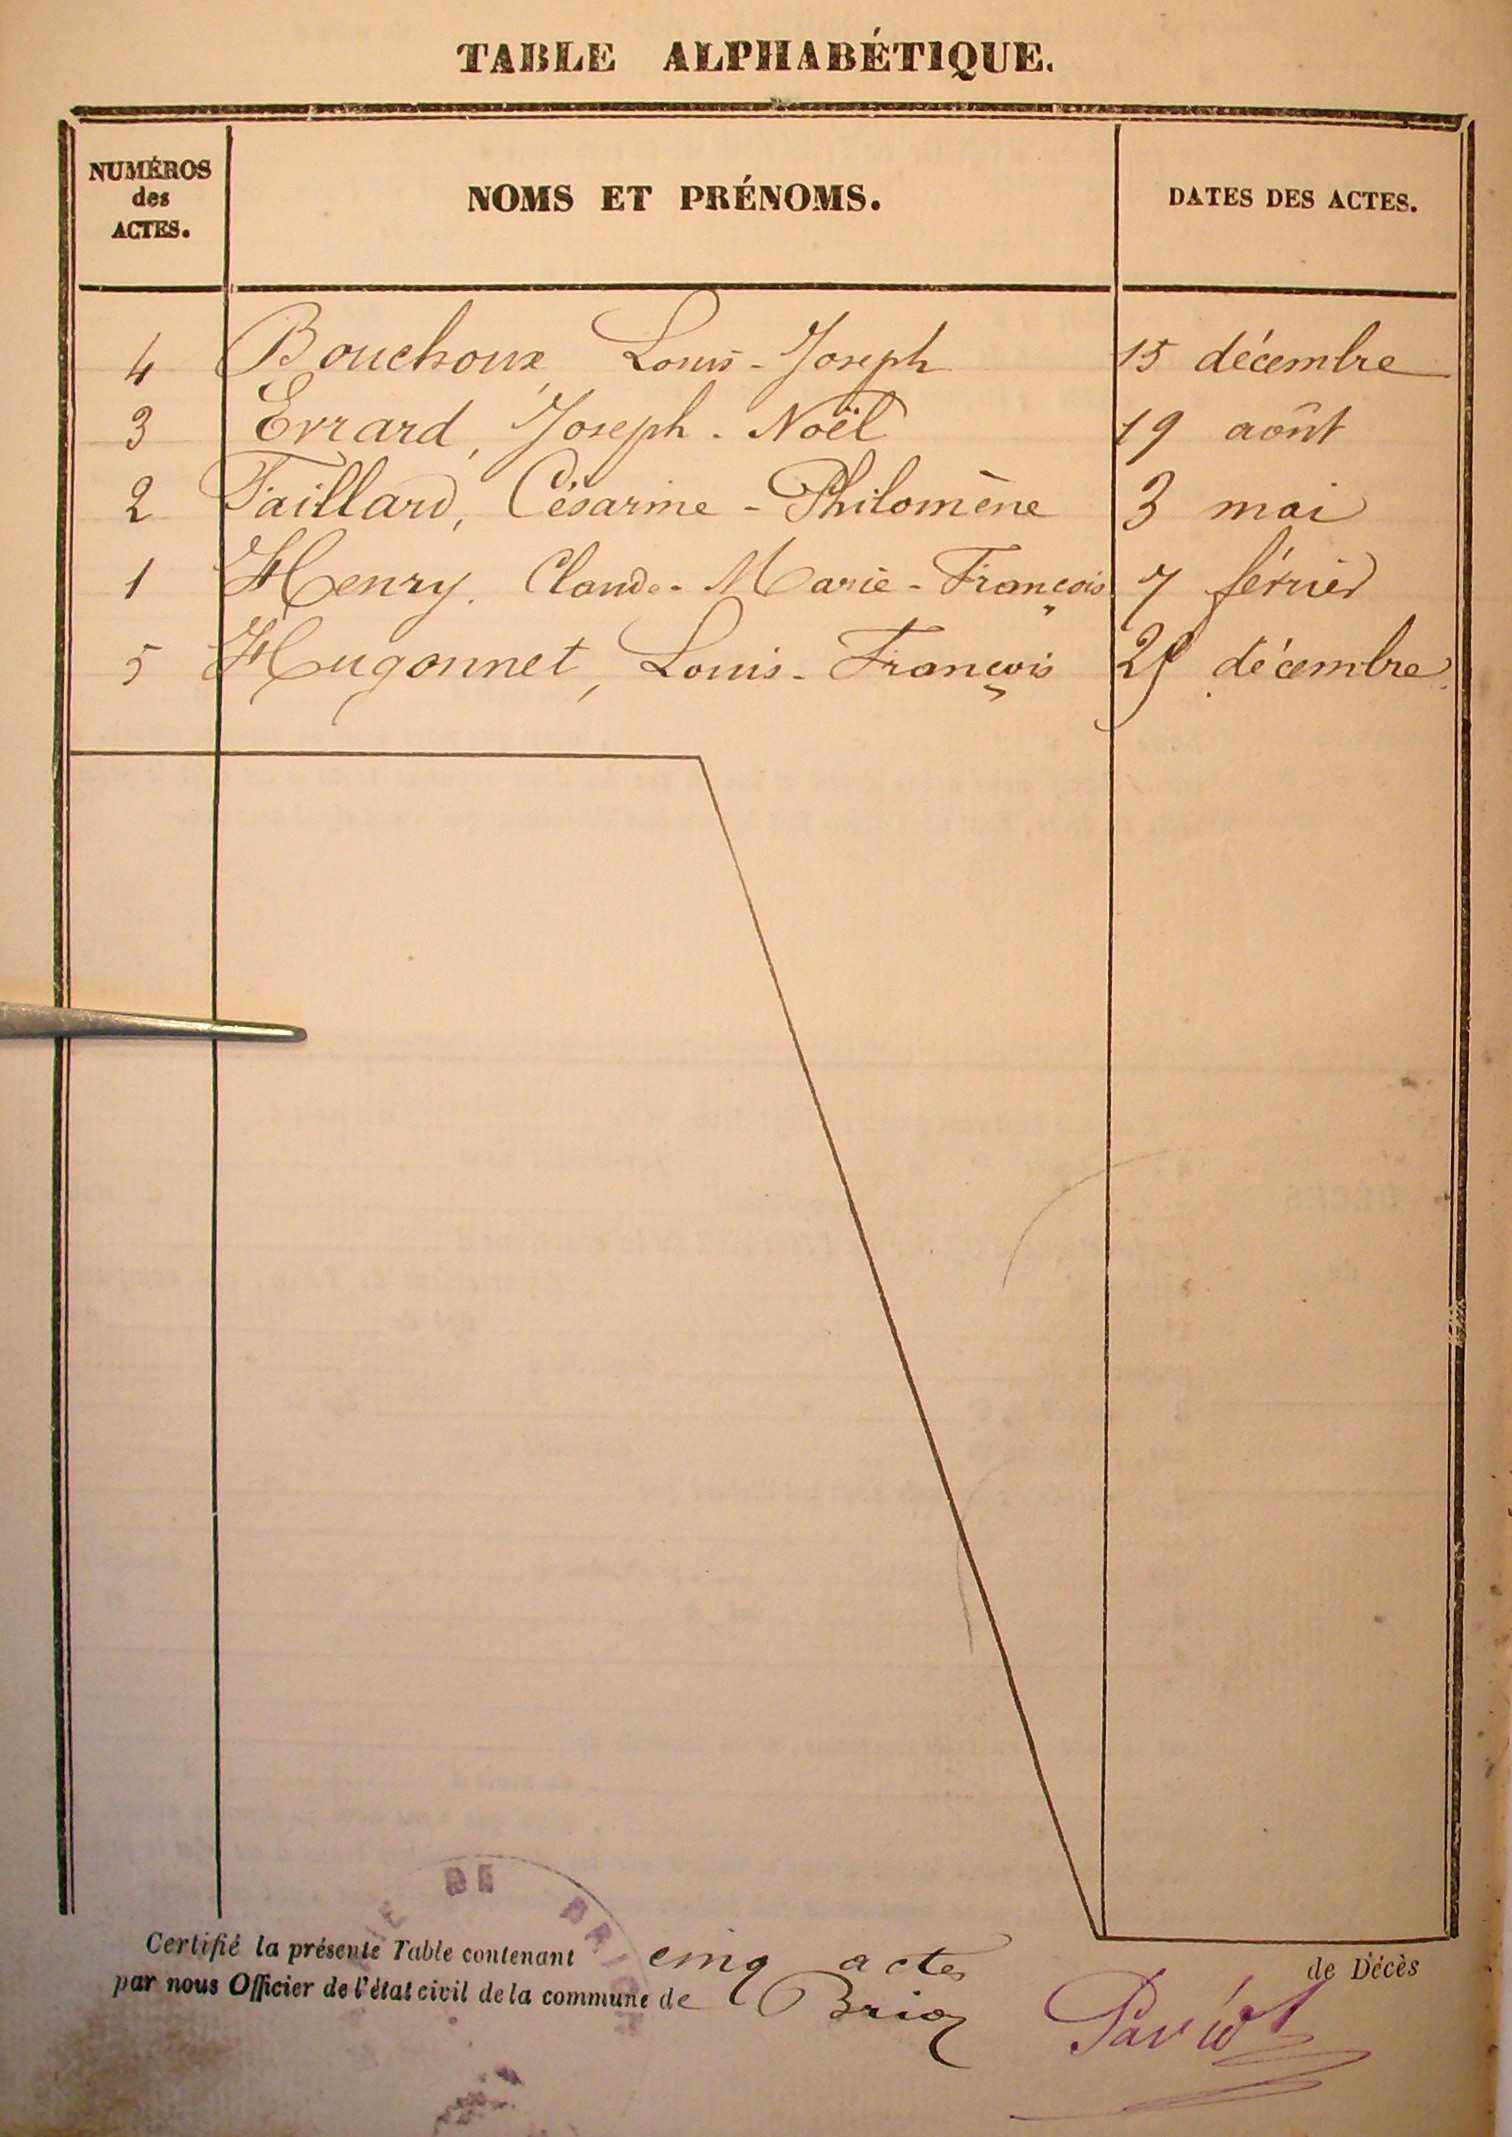 TABLE ALPHABÉTIQUE.
NUMÉROS des ACTES. NOMS ET PRÉNOMS. DATES DES ACTES.
4 Bouchoux Louis-Joseph 15 décembre
3 Errard, Joseph-Noël 19 août
2 Faillard, Césarine-Philomène 3 mai
1 Henry, Claude-Marie-François 7 février
5 Hugonnet, Louis-François décembre
DE
Certifié la présente Table contenant cinq actes de Décès
par nous Officier de l'état civil de la commune de Briod
Paviot